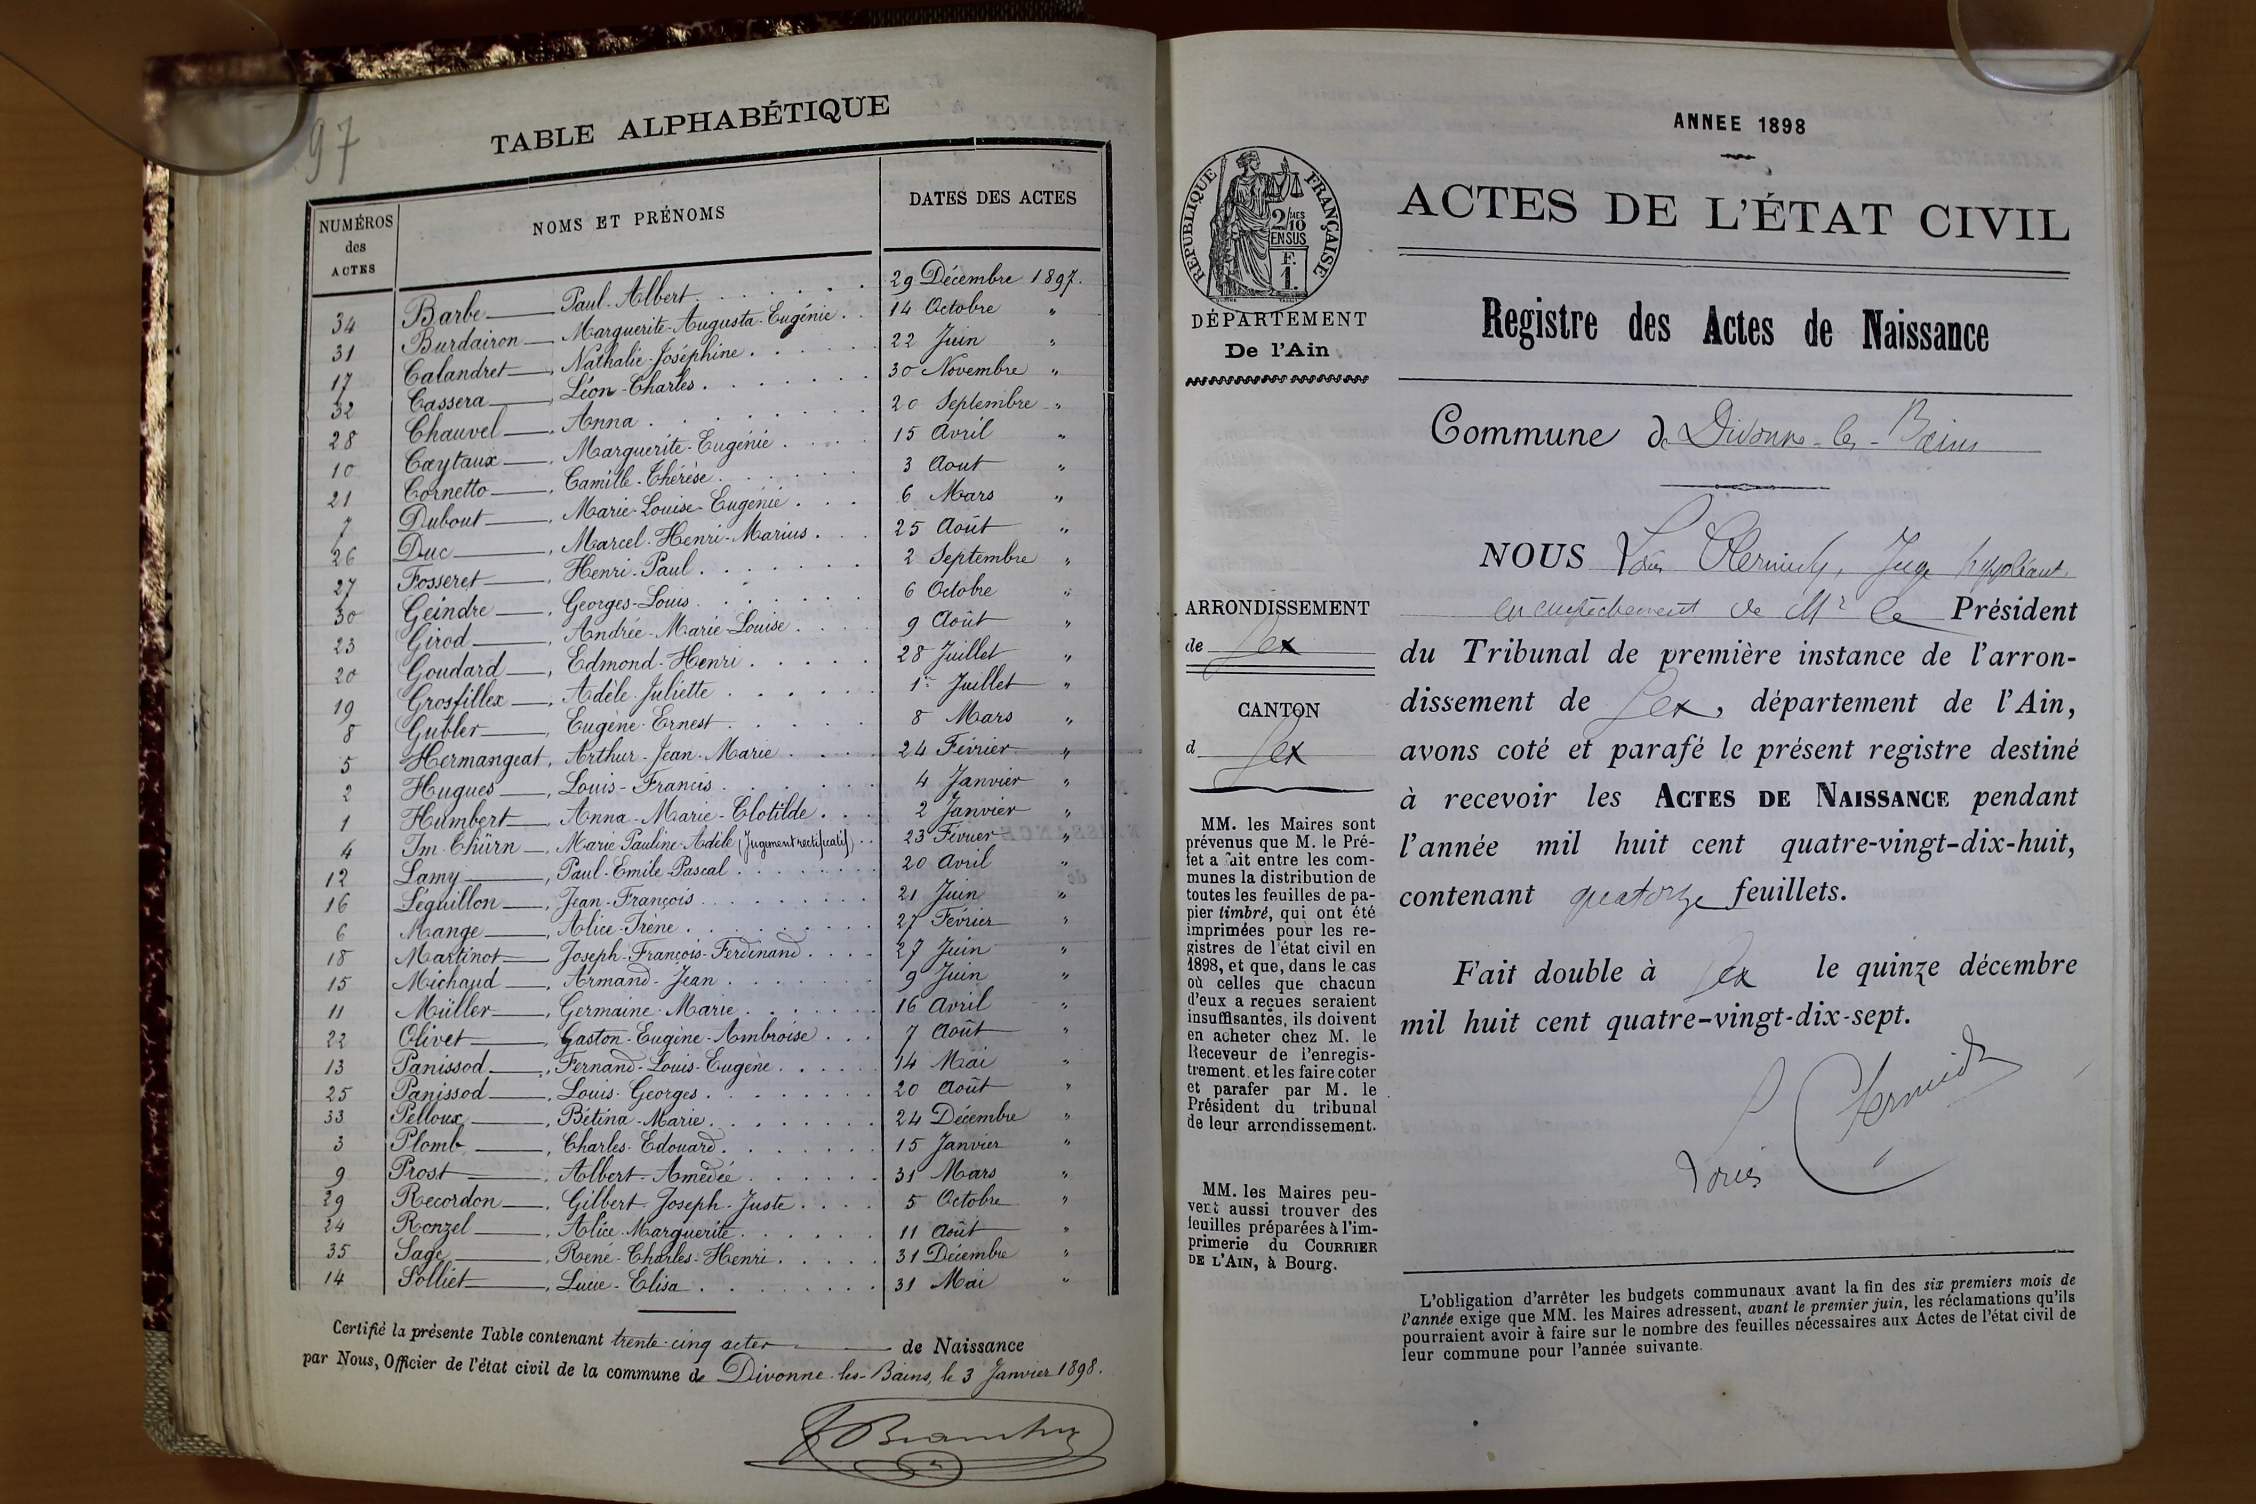 97
TABLE ALPHABÉTIQUE
NUMÉROS des ACTES NOMS ET PRÉNOMS DATES DES ACTES
34 Barbe Paul-Albert 29 Décembre 1897.
31 Burdairon Marguerite-Augusta-Eugénie 14 Octobre "
17 Calandret, Nathalie-Joséphine 22 Juin "
32 Cassera, Léon-Charles 30 Novembre "
28 Chauvel, Anna 20 Septembre "
10 Cæytaux, Marguerite-Eugénie 15 Avril "
21 Cornetto, Camille-Thérèse 3 Aout "
7 Dubout, Marie-Louise-Eugénie 6 Mars "
26 Duc, Marcel-Henri-Marius 25 Août "
27 Fosseret, Henri-Paul 2 Septembre "
30 Geindre, Georges-Louis 6 Octobre "
23 Girod, Andrée-Marie-Louise 9 Août "
20 Goudard, Edmond-Henri 28 Juillet "
19 Grosfillex, Adèle-Juliette 1er Juillet "
8 Gubler, Eugène-Ernest 8 Mars "
5 Hermangeat, Arthur-Jean-Marie 24 Février "
2 Hugues, Louis-Francis 4 Janvier "
1 Humbert, Anna-Marie-Clotilde 2 Janvier "
4 Im-Thürn, Marie Pauline-Adèle (Jugement rectificatif) 23 Février "
12 Lamy, Paul-Emile-Pascal 20 Avril "
16 Léguillon, Jean-François 21 Juin "
6 Mange, Alice-Irène 27 Février "
18 Martinot Joseph-François-Ferdinand 27 Juin "
15 Michaud, Armand-Jean 9 Juin "
11 Müller, Germaine-Marie 16 Avril "
22 Olivet, Gaston-Eugène-Ambroise 7 Août "
13 Panissod, Fernand-Louis-Eugène 14 Mai "
25 Panissod, Louis-Georges 20 Août "
33 Pelloux, Bétina-Marie 24 Décembre "
3 Plomb, Charles-Edouard 15 Janvier "
9 Prost, Albert-Amédée 31 Mars "
29 Recordon, Gilbert-Joseph-Juste 5 Octobre "
24 Ronzel, Alice-Marguerite 11 Août "
35 Sage, René-Charles-Henri 31 Décembre "
14 Solliet, Lucie-Elisa 31 Mai "
Certifié la présente Table contenant trente-cinq actes de Naissance
par Nous, Officier de l'état civil de la commune de Divonne-les-Bains, le 3 Janvier 1898.
ANNEE 1898
RÉPUBLIQUE FRANÇAISE
2/MES 10
EN SUS
F. 1.
DÉPARTEMENT
De l'Ain
ARRONDISSEMENT
de Gex
CANTON
d Gex
MM. les Maires sont
prévenus que M. le Pré-
fet a fait entre les com-
munes la distribution de
toutes les feuilles de pa-
pier timbré, qui ont été
imprimées pour les re-
gistres de l'état civil en
1898, et que, dans le cas
où celles que chacun
d'eux a reçues seraient
insuffisantes, ils doivent
en acheter chez M. le
Receveur de l'enregis-
trement. et les faire coter
et parafer par M. le
Président du tribunal
de leur arrondissement.
MM. les Maires peu-
vent aussi trouver des
feuilles préparées à l'im-
primerie du COURRIER
DE L'AIN, à Bourg.
ACTES DE L'ÉTAT CIVIL
Registre des Actes de Naissance
Commune de Divonne-les-Bains
NOUS Louis Juge suppléant
en empêchement de Mr le Président
du Tribunal de première instance de l'arron-
dissement de Gex, département de l'Ain,
avons coté et parafé le présent registre destiné
à recevoir les ACTES DE NAISSANCE pendant
l'année mil huit cent quatre-vingt-dix-huit,
contenant quatorze feuillets.
Fait double à Gex le quinze décembre
mil huit cent quatre-vingt-dix-sept.
Louis
L'obligation d'arrêter les budgets communaux avant la fin des six premiers mois de
l'année exige que MM. les Maires adressent, avant le premier juin, les réclamations qu'ils
pourraient avoir à faire sur le nombre des feuilles nécessaires aux Actes de l'état civil de
leur commune pour l'année suivante.